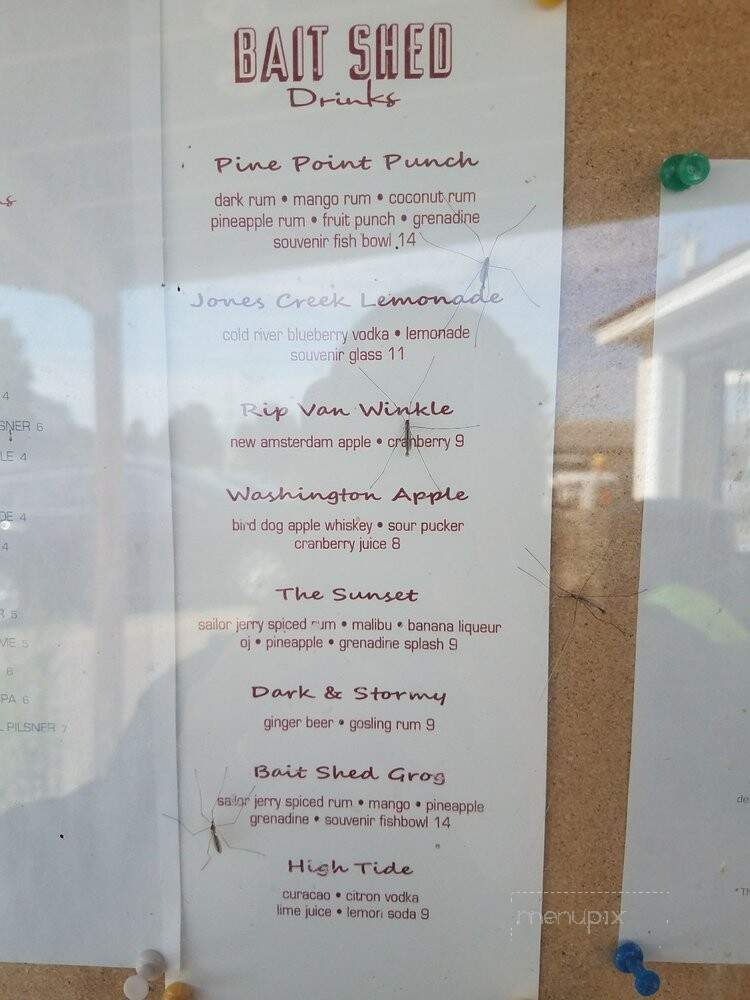 BAIT SHED
Drinks
Pine Point Punch
dark rum • mango rum • coconut rum
pineapple rum • fruit punch • grenadine
souvenir fish bowl 14
Jones Creek Lemonade
cold river blueberry vodka • lemonade
souvenir glass 11
Rip Van Winkle
new amsterdam apple • cranberry 9
Washington Apple
bird dog apple whiskey • sour pucker
cranberry juice 8
The Sunset
sailor jerry spiced rum • malibu • banana liqueur
oj • pineapple • grenadine splash 9
Dark & Stormy
ginger beer • gosling rum 9
Bait Shed Grog
sailor jerry spiced rum • mango • pineapple
grenadine • souvenir fishbowl 14
High Tide
curacao • citron vodka
lime juice • lemon soda 9
4
SNER 6
LE 4
DE 4
4
R 5
ME 5
6
PA 6
L PILSNER 7
de
*Th
menupix